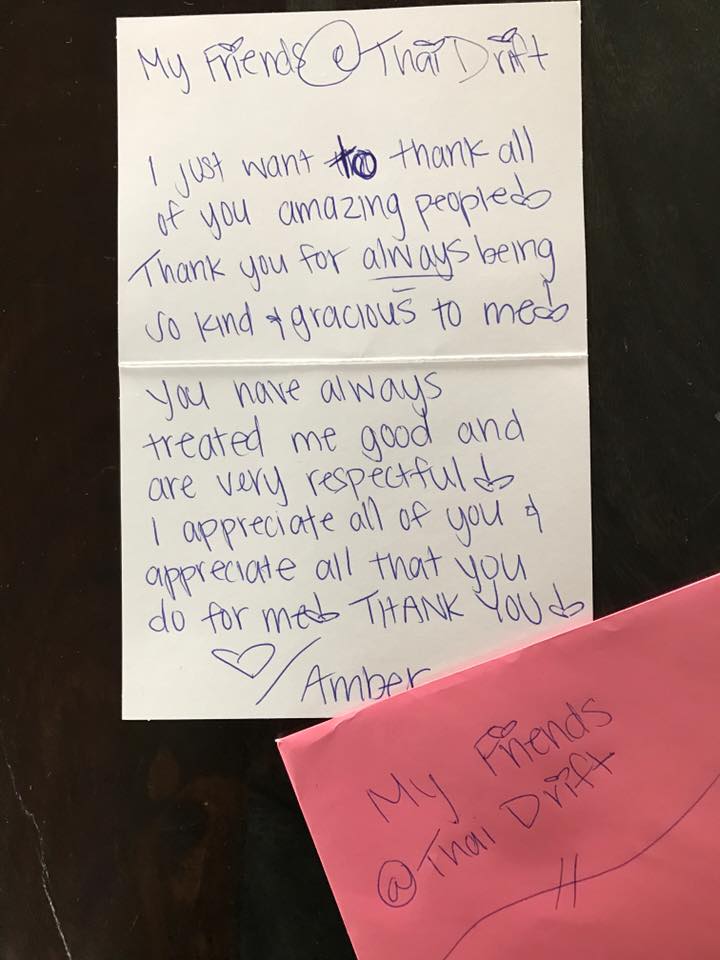 My Friends @ Thai Drift
I just want to thank all
of you amazing people♡
Thank you for always being
so kind & gracious to me♡
You have always
treated me good and
are very respectful♡
I appreciate all of you &
appreciate all that you
do for me♡ THANK YOU♡
♡/Amber
My Friends
@Thai Drift